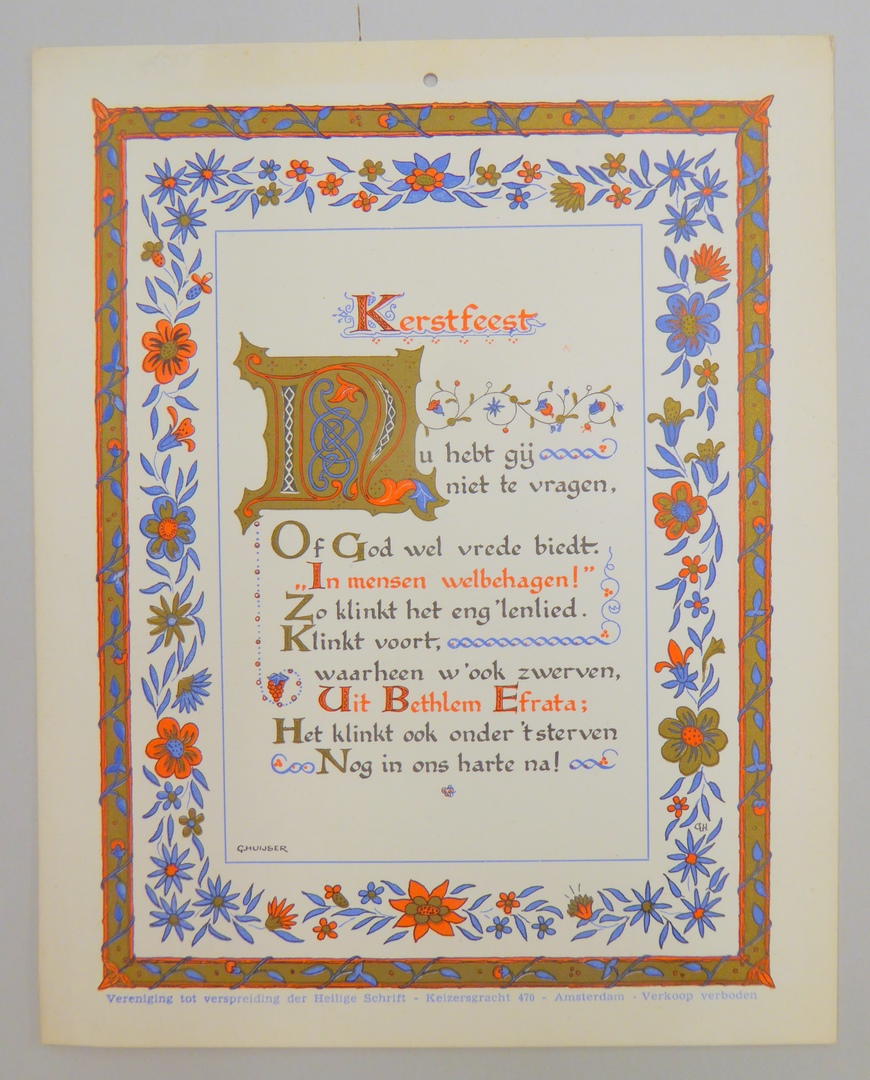 Kerstfeest
Nu hebt gij
niet te vragen,
Of God wel vrede biedt.
„In mensen welbehagen!”
Zo klinkt het eng'lenlied.
Klinkt voort,
waarheen w'ook zwerven,
Uit Bethlem Efrata;
Het klinkt ook onder 't sterven
Nog in ons harte na!
GH
G.HUIJSER
Vereniging tot verspreiding der Heilige Schrift - Keizersgracht 470 - Amsterdam - Verkoop verboden